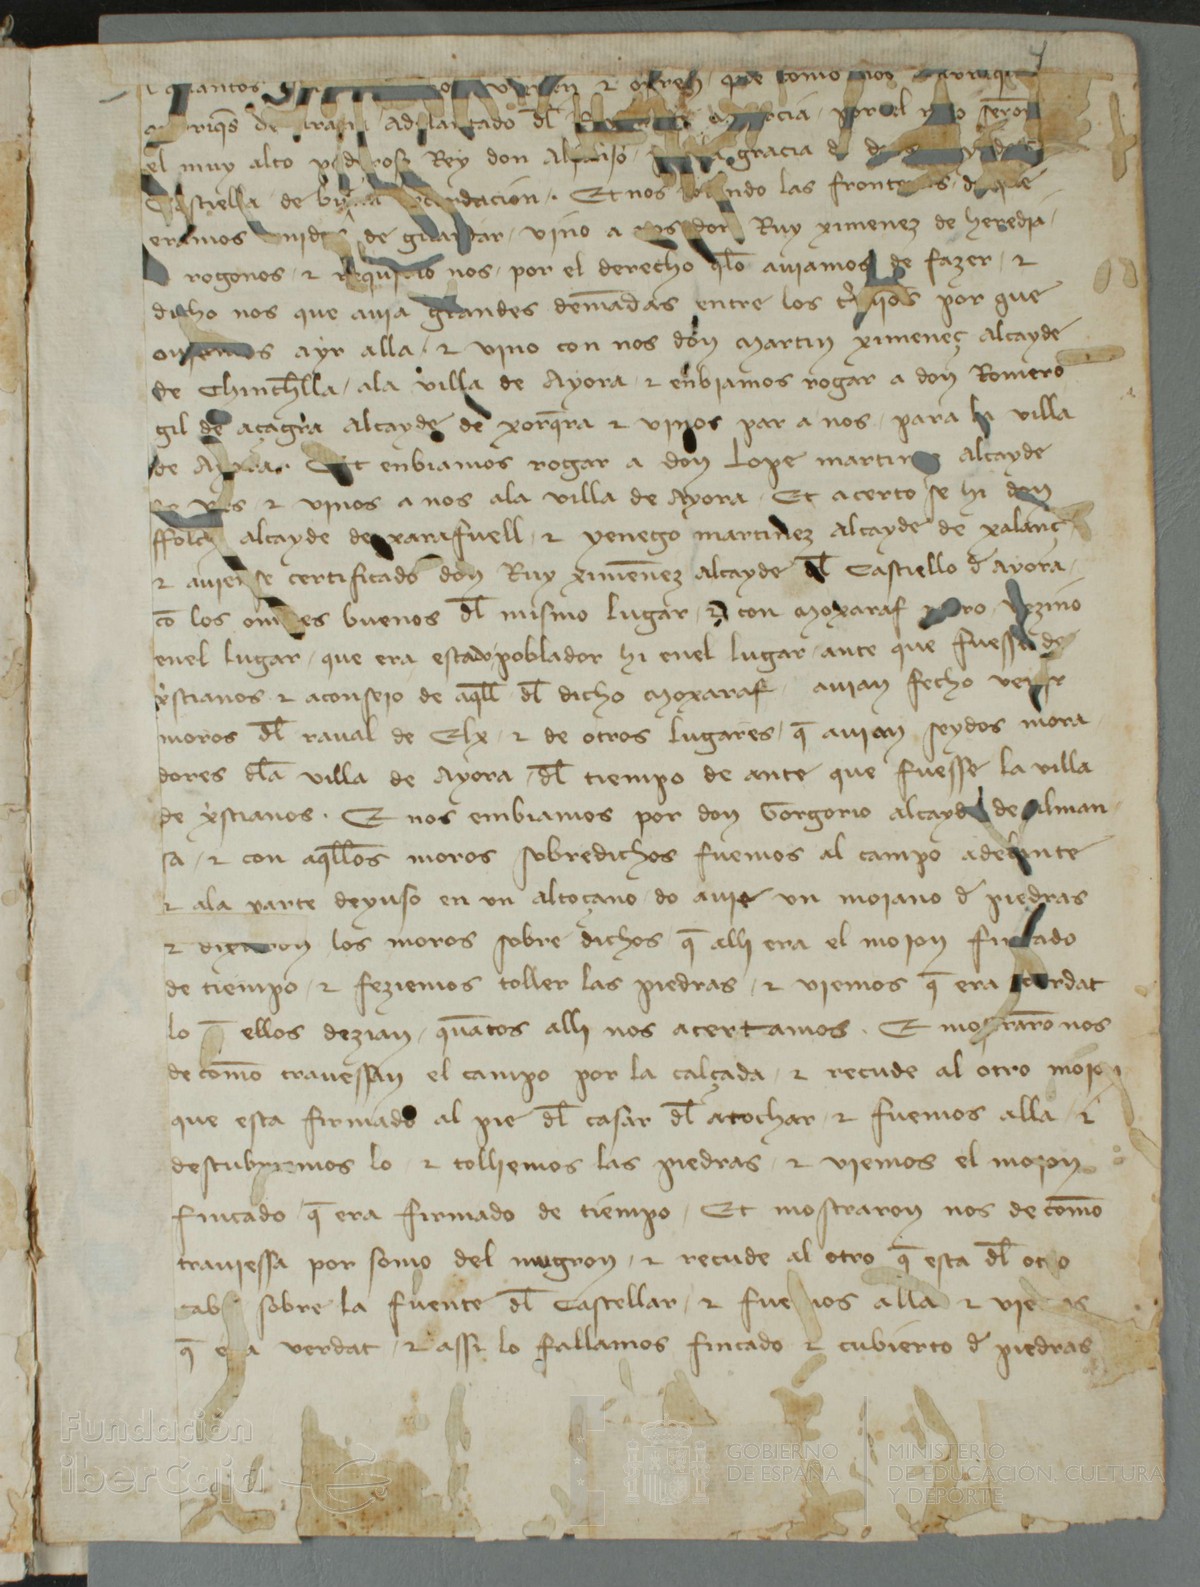 quantos & oyren que como nos
riqs de adelantado dl murcia por el
el muy alto poderoso Rey don Alfonso gracia
Castiella de buena Et nos las fronteras de que
eramos de guardar vino a nos don Ruy ximenez de heredia
rogonos & nos por el derecho qlo auiamos de fazer &
dicho nos que auia grandes demādas entre los por que
ouiemos ayr alla & vino con nos don martin ximeneç alcayde
de Chinchlla ala villa de Ayora & enbiamos rogar a don Romero
gil de açagra alcayde de xorqra & vinos par a nos para hi villa
de Ayora Et enbiamos rogar a don Lope martinez alcayde
& vinos a nos ala villa de Ayora Et acerto se hi don
alcayde de xarafuell & yenego martinez alcayde de xalanç
& certificado don Ruy ximēnez alcayde dl Castiello d Ayora
cō los omes buenos dl mismo lugar & con moxaraf moro vezino
enel lugar que era poblador hi enel lugar ante que fuesse de
xstianos & aconseio de aqll dl dicho moxaraf auian fecho venir
moros dl raual de Elx & de otros lugares q̄ auian seydos mora
dores dla villa de Ayora dl tiempo de ante que fuesse la villa
de xstianos. Et nos embiamos por don Gorgorio alcayde de alman
sa & con aqllos moros sobredichos fuemos al campo adelante
& ala parte deyuso en vn altoçano do auie vn moiano d piedras
& dixeron los moros sobre dichos q̄ alli era el moion fincado
de tiempo & feziemos toller las piedras & viemos q̄ era verdat
lo ellos dezian quātos alli nos acertamos. Et mostrarō nos
de cōmo trauessan el campo por la calçada & recude al otro moion
que esta firmado al pie dl casar dl atochar & fuemos alla &
descubriemos lo & tolliemos las piedras & viemos el moion
fincado q̄ era firmado de tiempo Et mostraron nos de cōmo
trauiessa por somo del mugron & recude al otro q̄ esta dl otro
cabo sobre la fuente dl Castellar & fuemos alla & viemos
q̄ era verdat & assi lo fallamos fincado & cubierto d piedras
Fundación
iberCaja
GOBIERNO
DE ESPAÑA
MINISTERIO
DE EDUCACIÓN, CULTURA
Y DEPORTE